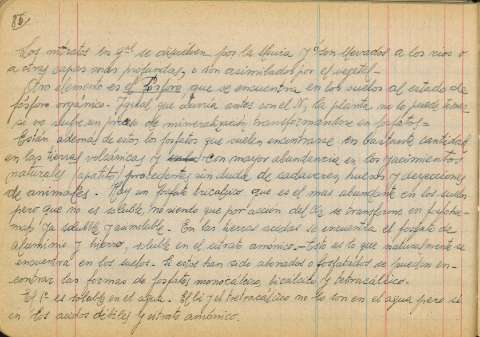 86
Los nitratos en gral se disuelven por la lluvia y son llevados a los rios o
a otras capas más profundas, o son asimilados por el vegetal.-
Otro elemento es el fósforo que se encuentra en los suelos al estado de
fósforo orgánico. Igual que ocurria antes con el N, la planta no lo puede
si no sufre un proceso de mineralización transformandose en fosfatos.-
Están ademas de estos los fosfatos que suelen encontrarse en bastante cantidad
en las tierras volcanicas y con mayor abundancia en los yacimientos
naturales apatitos procedentes sin duda de cadaveres huesos y deyecciones
de animales. Hay un fosfato tricalcico que es el mas abundante en los suelos
pero que no es soluble, mientras que por acción del se transforma en
ya soluble y asimilable. En las tierras acidas se encuentra el fosfato de
aluminio y hierro, soluble en el citrato amónico.- Esto es lo que naturalmente se
encuentra en los suelos. Si estos han sido abonados o fosfatados se pueden en-
contrar las formas de fosfatos monocálcico, bicalcico y tetracálcico.
El 1º es soluble en el agua. El bi y el tetracálcico no lo son en el agua pero si
en los acidos débiles y citrato amónico.